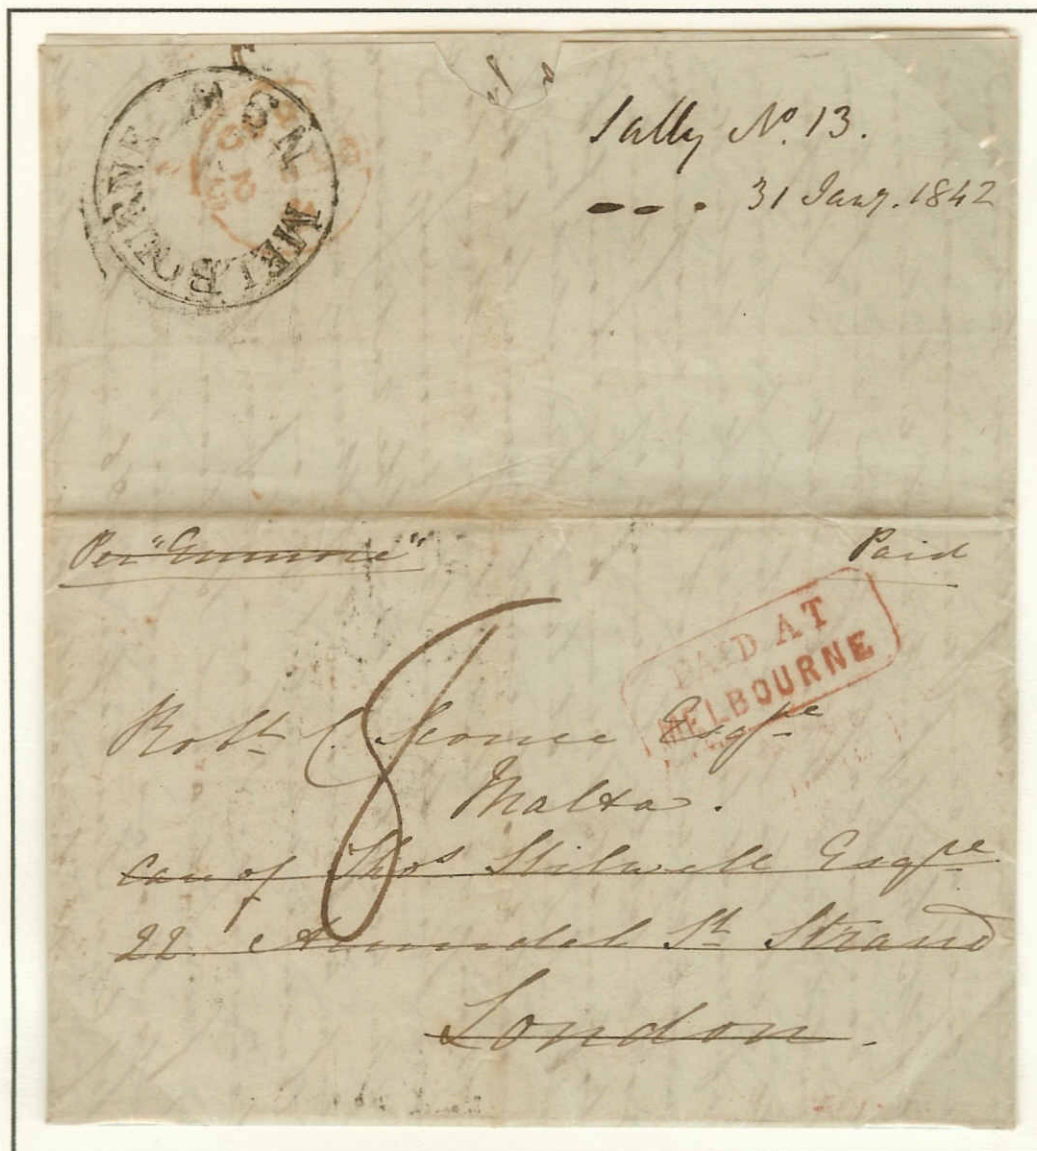 MELBOURNE NSW
Sally No. 13.
31 Jany. 1842
Per "Enmore"
Paid
PAID AT
MELBOURNE
8
Robt. C. Esqre
Malta.
Care of Thos Stilwell Esqre
22 Arundel St Strand
London.